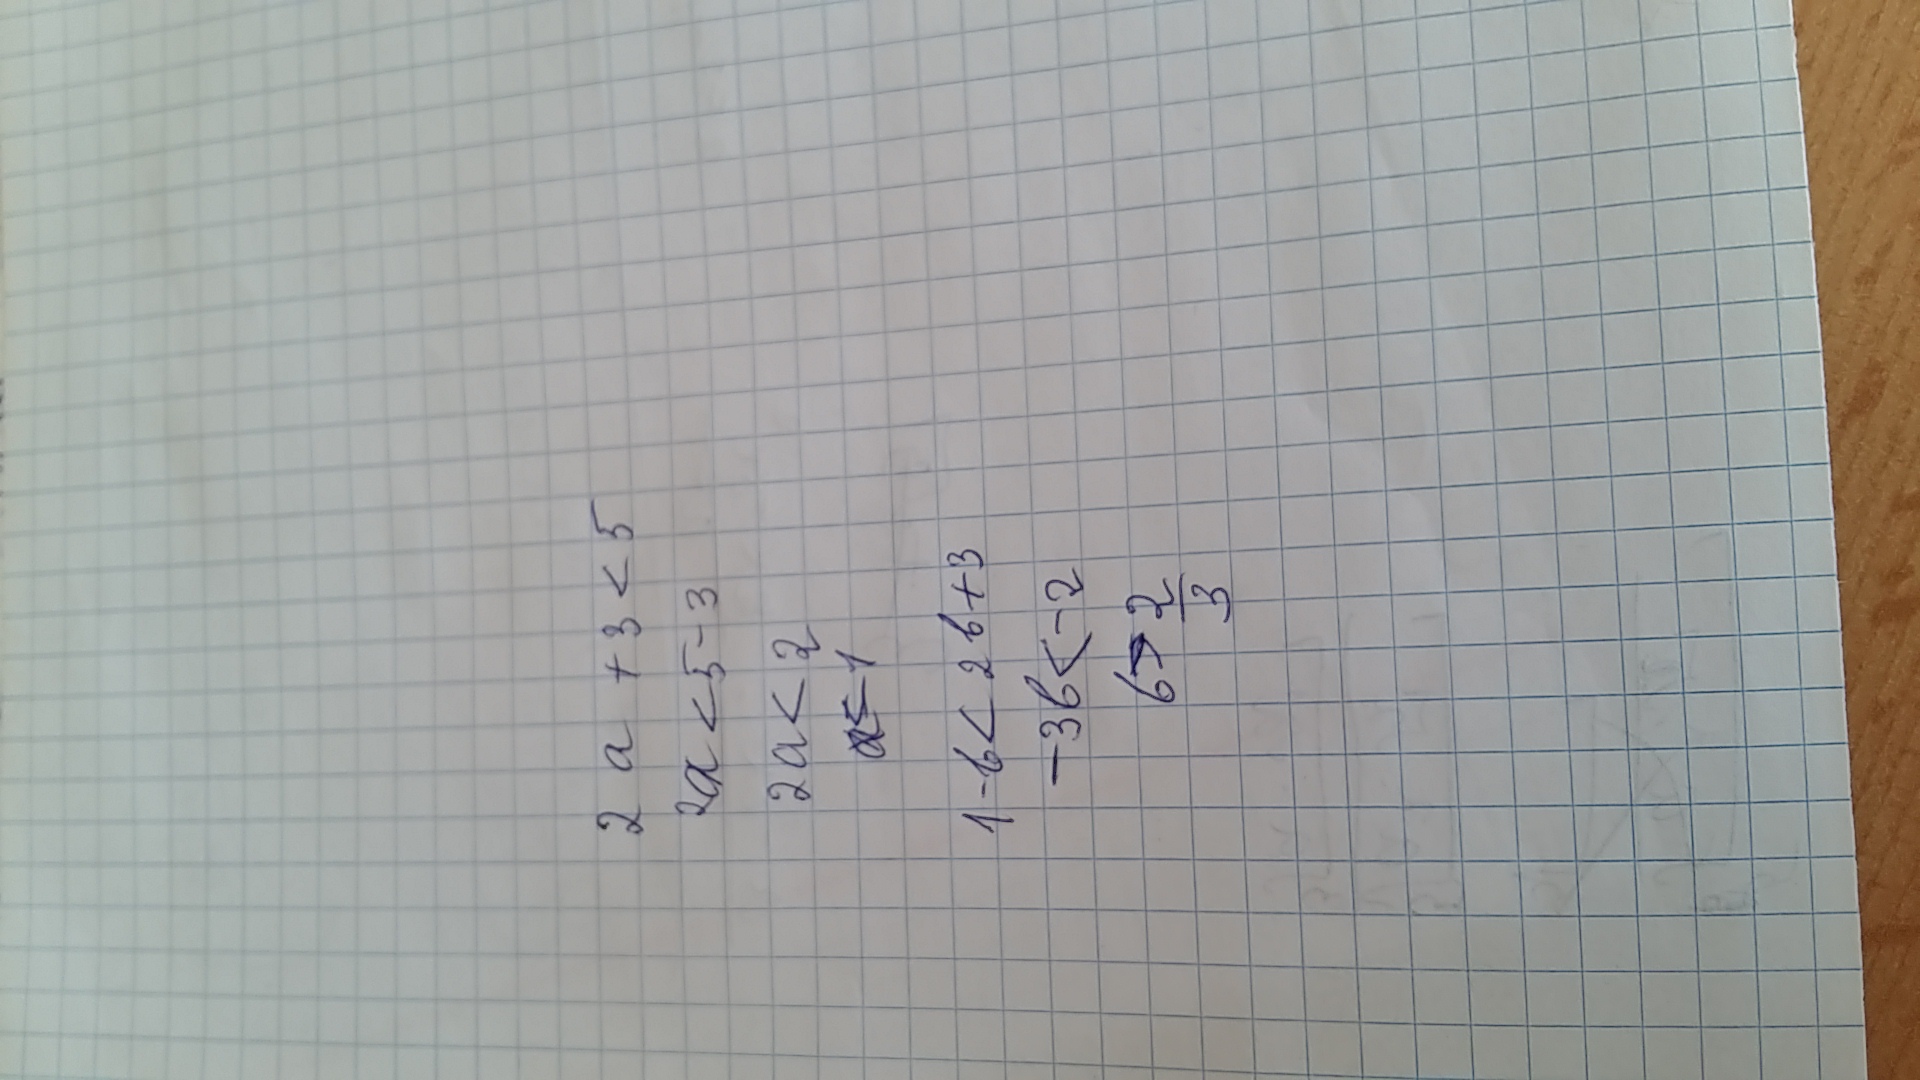 2a+3<5
2a<5-3
2a<2
a<1
1-b<2b+3
-3b<-2
b>2/3